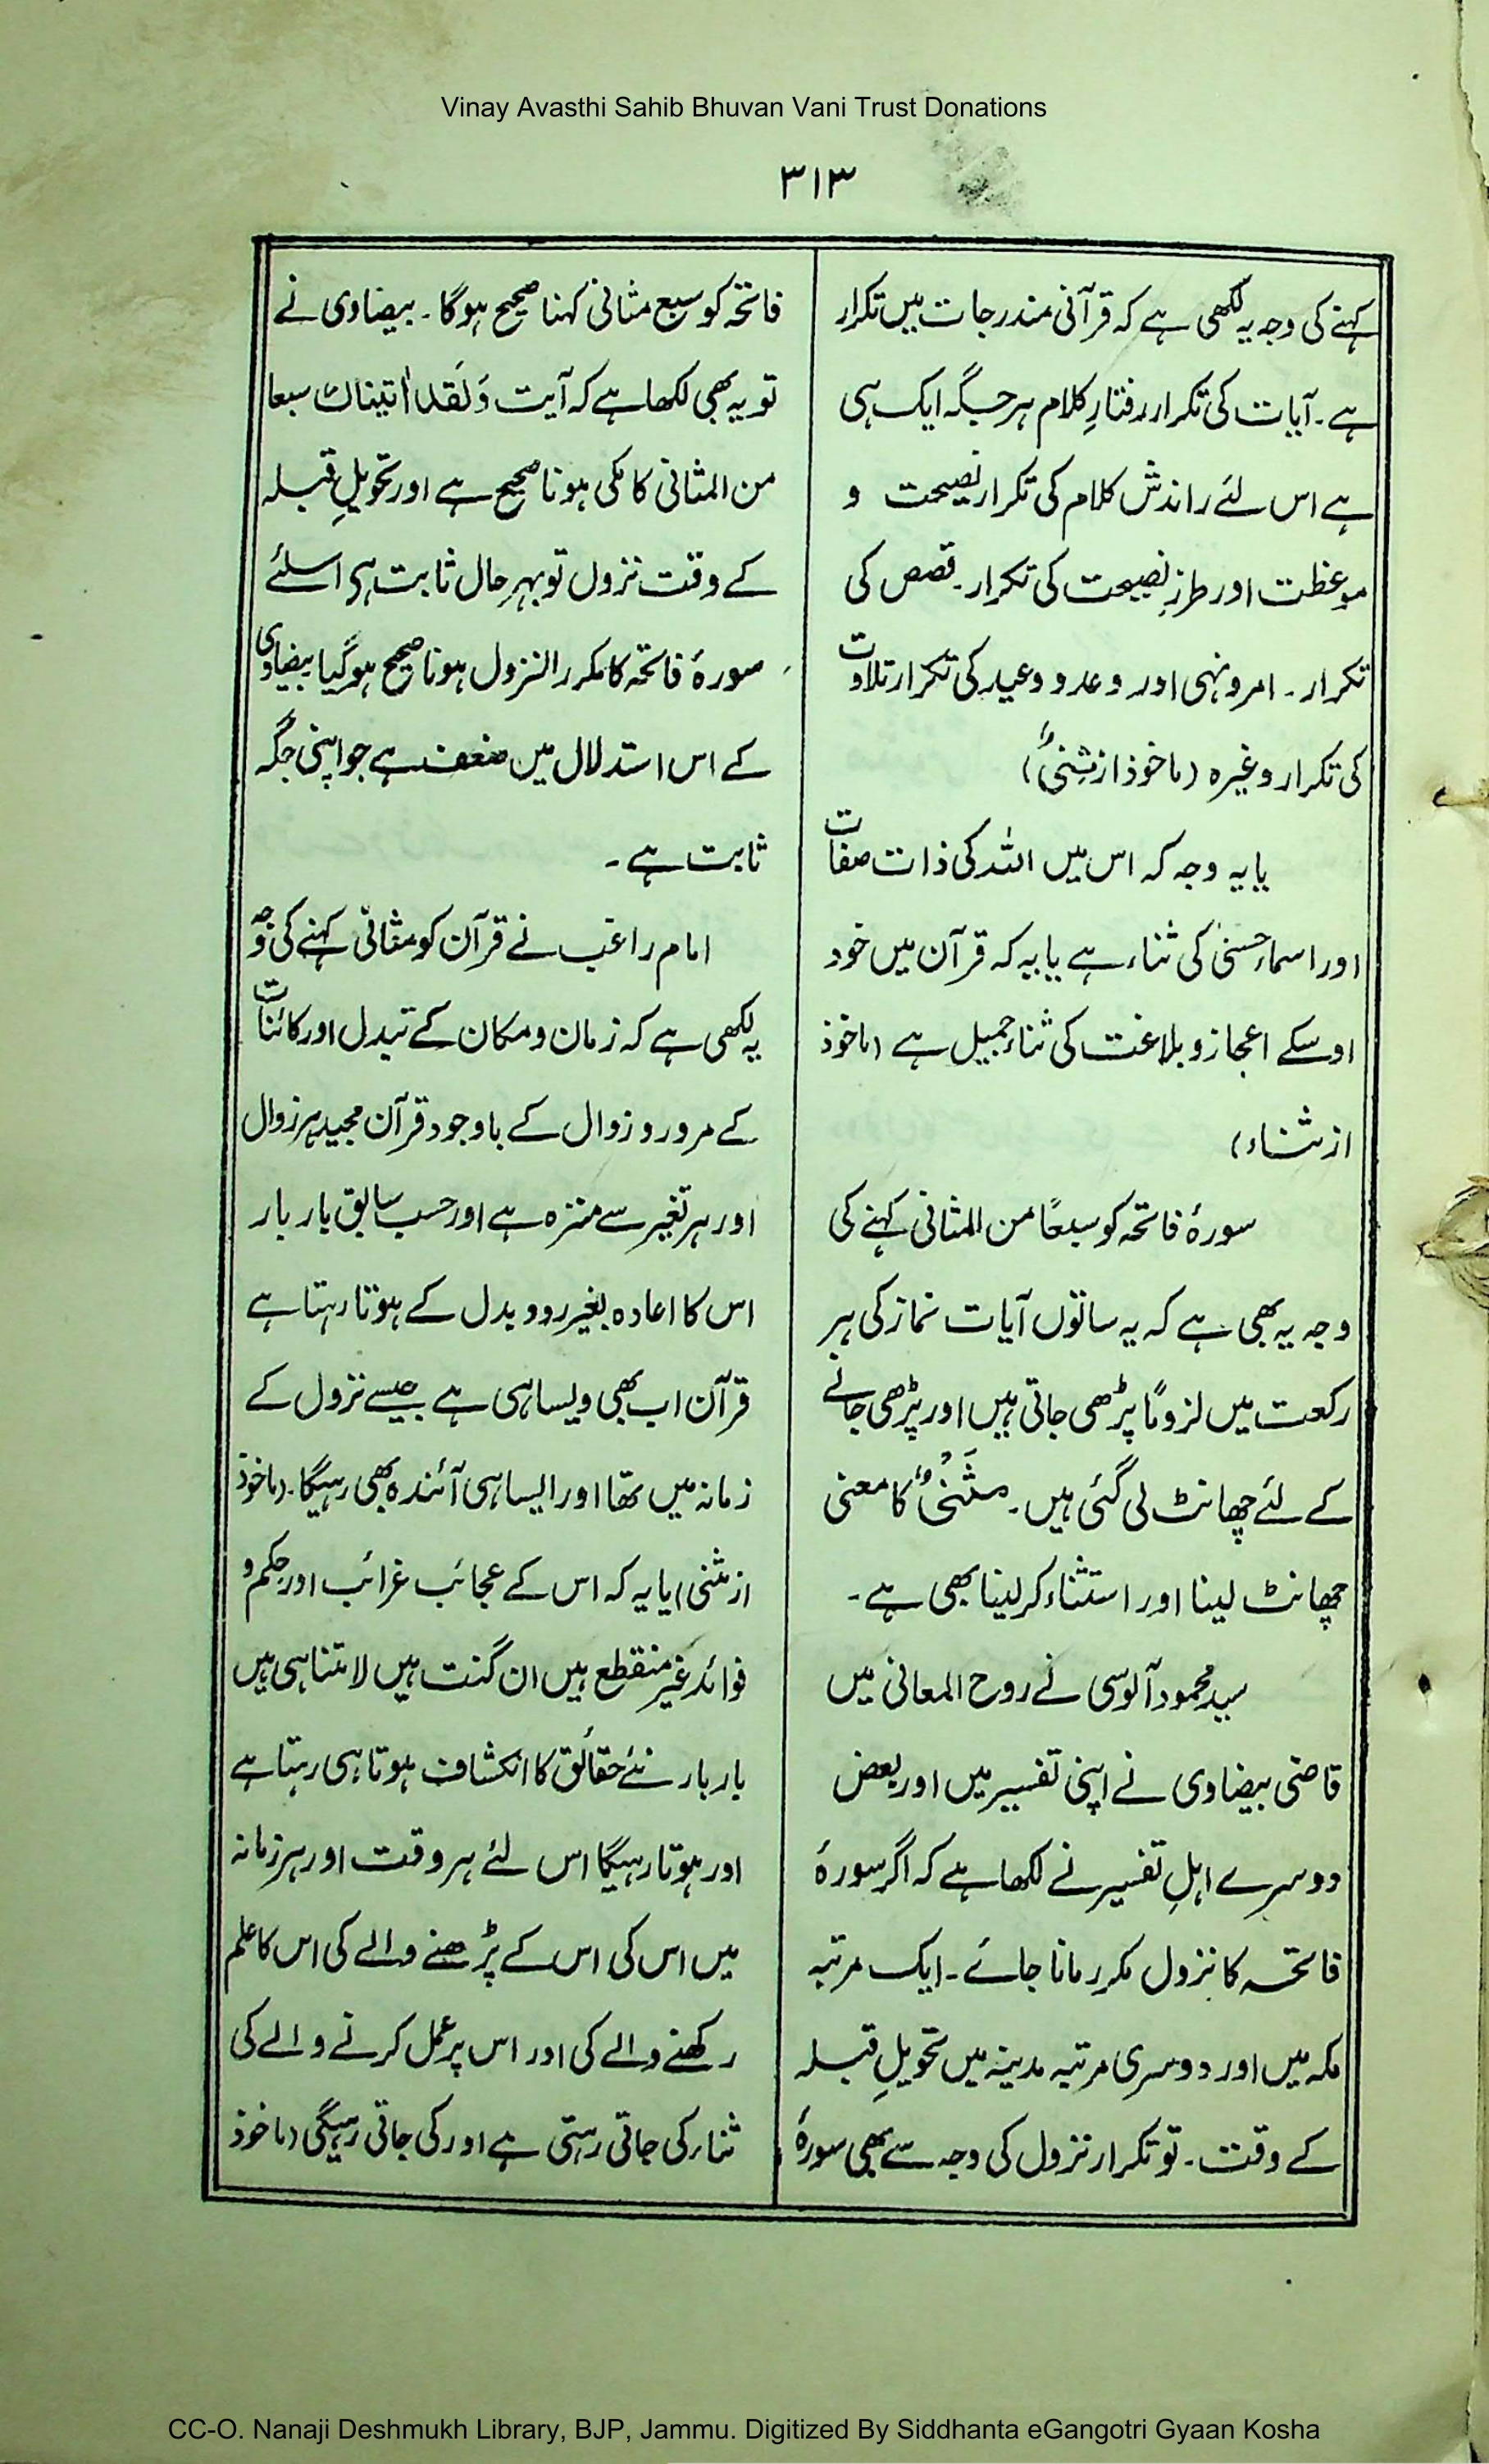 Vinay Avasthi Sahib Bhuvan Vani Trust Donations
۳۱۳
کہنے کی وجہ یہ لکھی ہے کہ قرآنی مندرجات میں تکرار
ہے۔ آیات کی تکرار رفتارِ کلام ہر جگہ ایک ہی
ہے اس لئے راندش کلام کی تکرار نصیحت و
موعظت اور طرزِ نصیحت کی تکرار۔ قصص کی
تکرار۔ امر و نہی اور وعد و وعید کی تکرار تلاوت
کی تکرار وغیرہ (ماخوذ از ثنیٰ)
یا یہ وجہ کہ اس میں اللہ کی ذات صفات
اور اسماء حسنیٰ کی ثناء ہے یا یہ کہ قرآن میں خود
اوسکے اعجاز و بلاغت کی ثناء جمیل ہے (ماخوذ
از ثناء)
سورۂ فاتحہ کو سبعًا من المثانی کہنے کی
وجہ یہ بھی ہے کہ یہ ساتوں آیات نماز کی ہر
رکعت میں لزومًا پڑھی جاتی ہیں اور پڑھی جانے
کے لئے چھانٹ لی گئی ہیں۔ مَثْنیٰ کا معنی
چھانٹ لینا اور استثناء کر لینا بھی ہے۔
سید محمود آلوسی نے روح المعانی میں
قاضی بیضاوی نے اپنی تفسیر میں اور بعض
دوسرے اہلِ تفسیر نے لکھا ہے کہ اگر سورۂ
فاتحہ کا نزول مکرر مانا جائے۔ ایک مرتبہ
مکہ میں اور دوسری مرتبہ مدینہ میں تحویلِ قبلہ
کے وقت۔ تو تکرار نزول کی وجہ سے بھی سورۂ
فاتحہ کو سبع مثانی کہنا صحیح ہوگا۔ بیضاوی نے
تو یہ بھی لکھا ہے کہ آیت وَلَقَد اٰتیناك سبعا
من المثانی کا مکی ہونا صحیح ہے اور تحویلِ قبلہ
کے وقت نزول تو بہرحال ثابت ہی اسلئے
سورۂ فاتحہ کا مکرر النزول ہونا صحیح ہوگیا بیضاوی
کے اس استدلال میں ضعف ہے جو اپنی جگہ
ثابت ہے۔
امام راغب نے قرآن کو مثانی کہنے کی وجہ
یہ لکھی ہے کہ زمان و مکان کے تبدل اور کائنات
کے مرور و زوال کے باوجود قرآن مجید ہر زوال
اور ہر تغیر سے منزہ ہے اور حسب سابق بار بار
اس کا اعادہ بغیر ردو بدل کے ہوتا رہتا ہے
قرآن اب بھی ویسا ہی ہے جیسے نزول کے
زمانہ میں تھا اور ایسا ہی آئندہ بھی رہیگا۔ (ماخوذ
از ثنی) یا یہ کہ اس کے عجائب غرائب اور حِکم و
فوائد غیر منقطع ہیں ان گنت ہیں لا متناہی ہیں
بار بار نئے حقائق کا انکشاف ہوتا ہی رہتا ہے
اور ہوتا رہیگا اس لئے ہر وقت اور ہر زمانہ
میں اس کی اس کے پڑھنے والے کی اس کا علم
رکھنے والے کی اور اس پر عمل کرنے والے کی
ثناء کی جاتی رہتی ہے اور کی جاتی رہیگی (ماخوذ
CC-O. Nanaji Deshmukh Library, BJP, Jammu. Digitized By Siddhanta eGangotri Gyaan Kosha